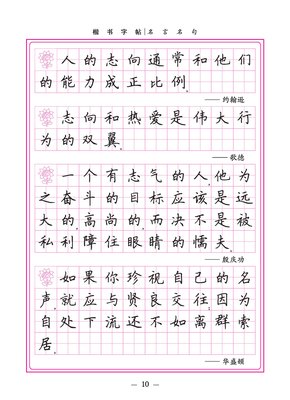 楷书字帖|名言名句
人的志向通常和他们
的能力成正比例。
——约翰逊
志向和热爱是伟大行
为的双翼。
——歌德
一个有志气的人,他为
之奋斗的目标应该是远
大的,高尚的,而决不是被
私利障住眼睛的懦夫。
——殷庆功
如果你珍视自己的名
声,就应与贤良交往;因为
自处下流还不如离群索
居。
——华盛顿
— 10 —